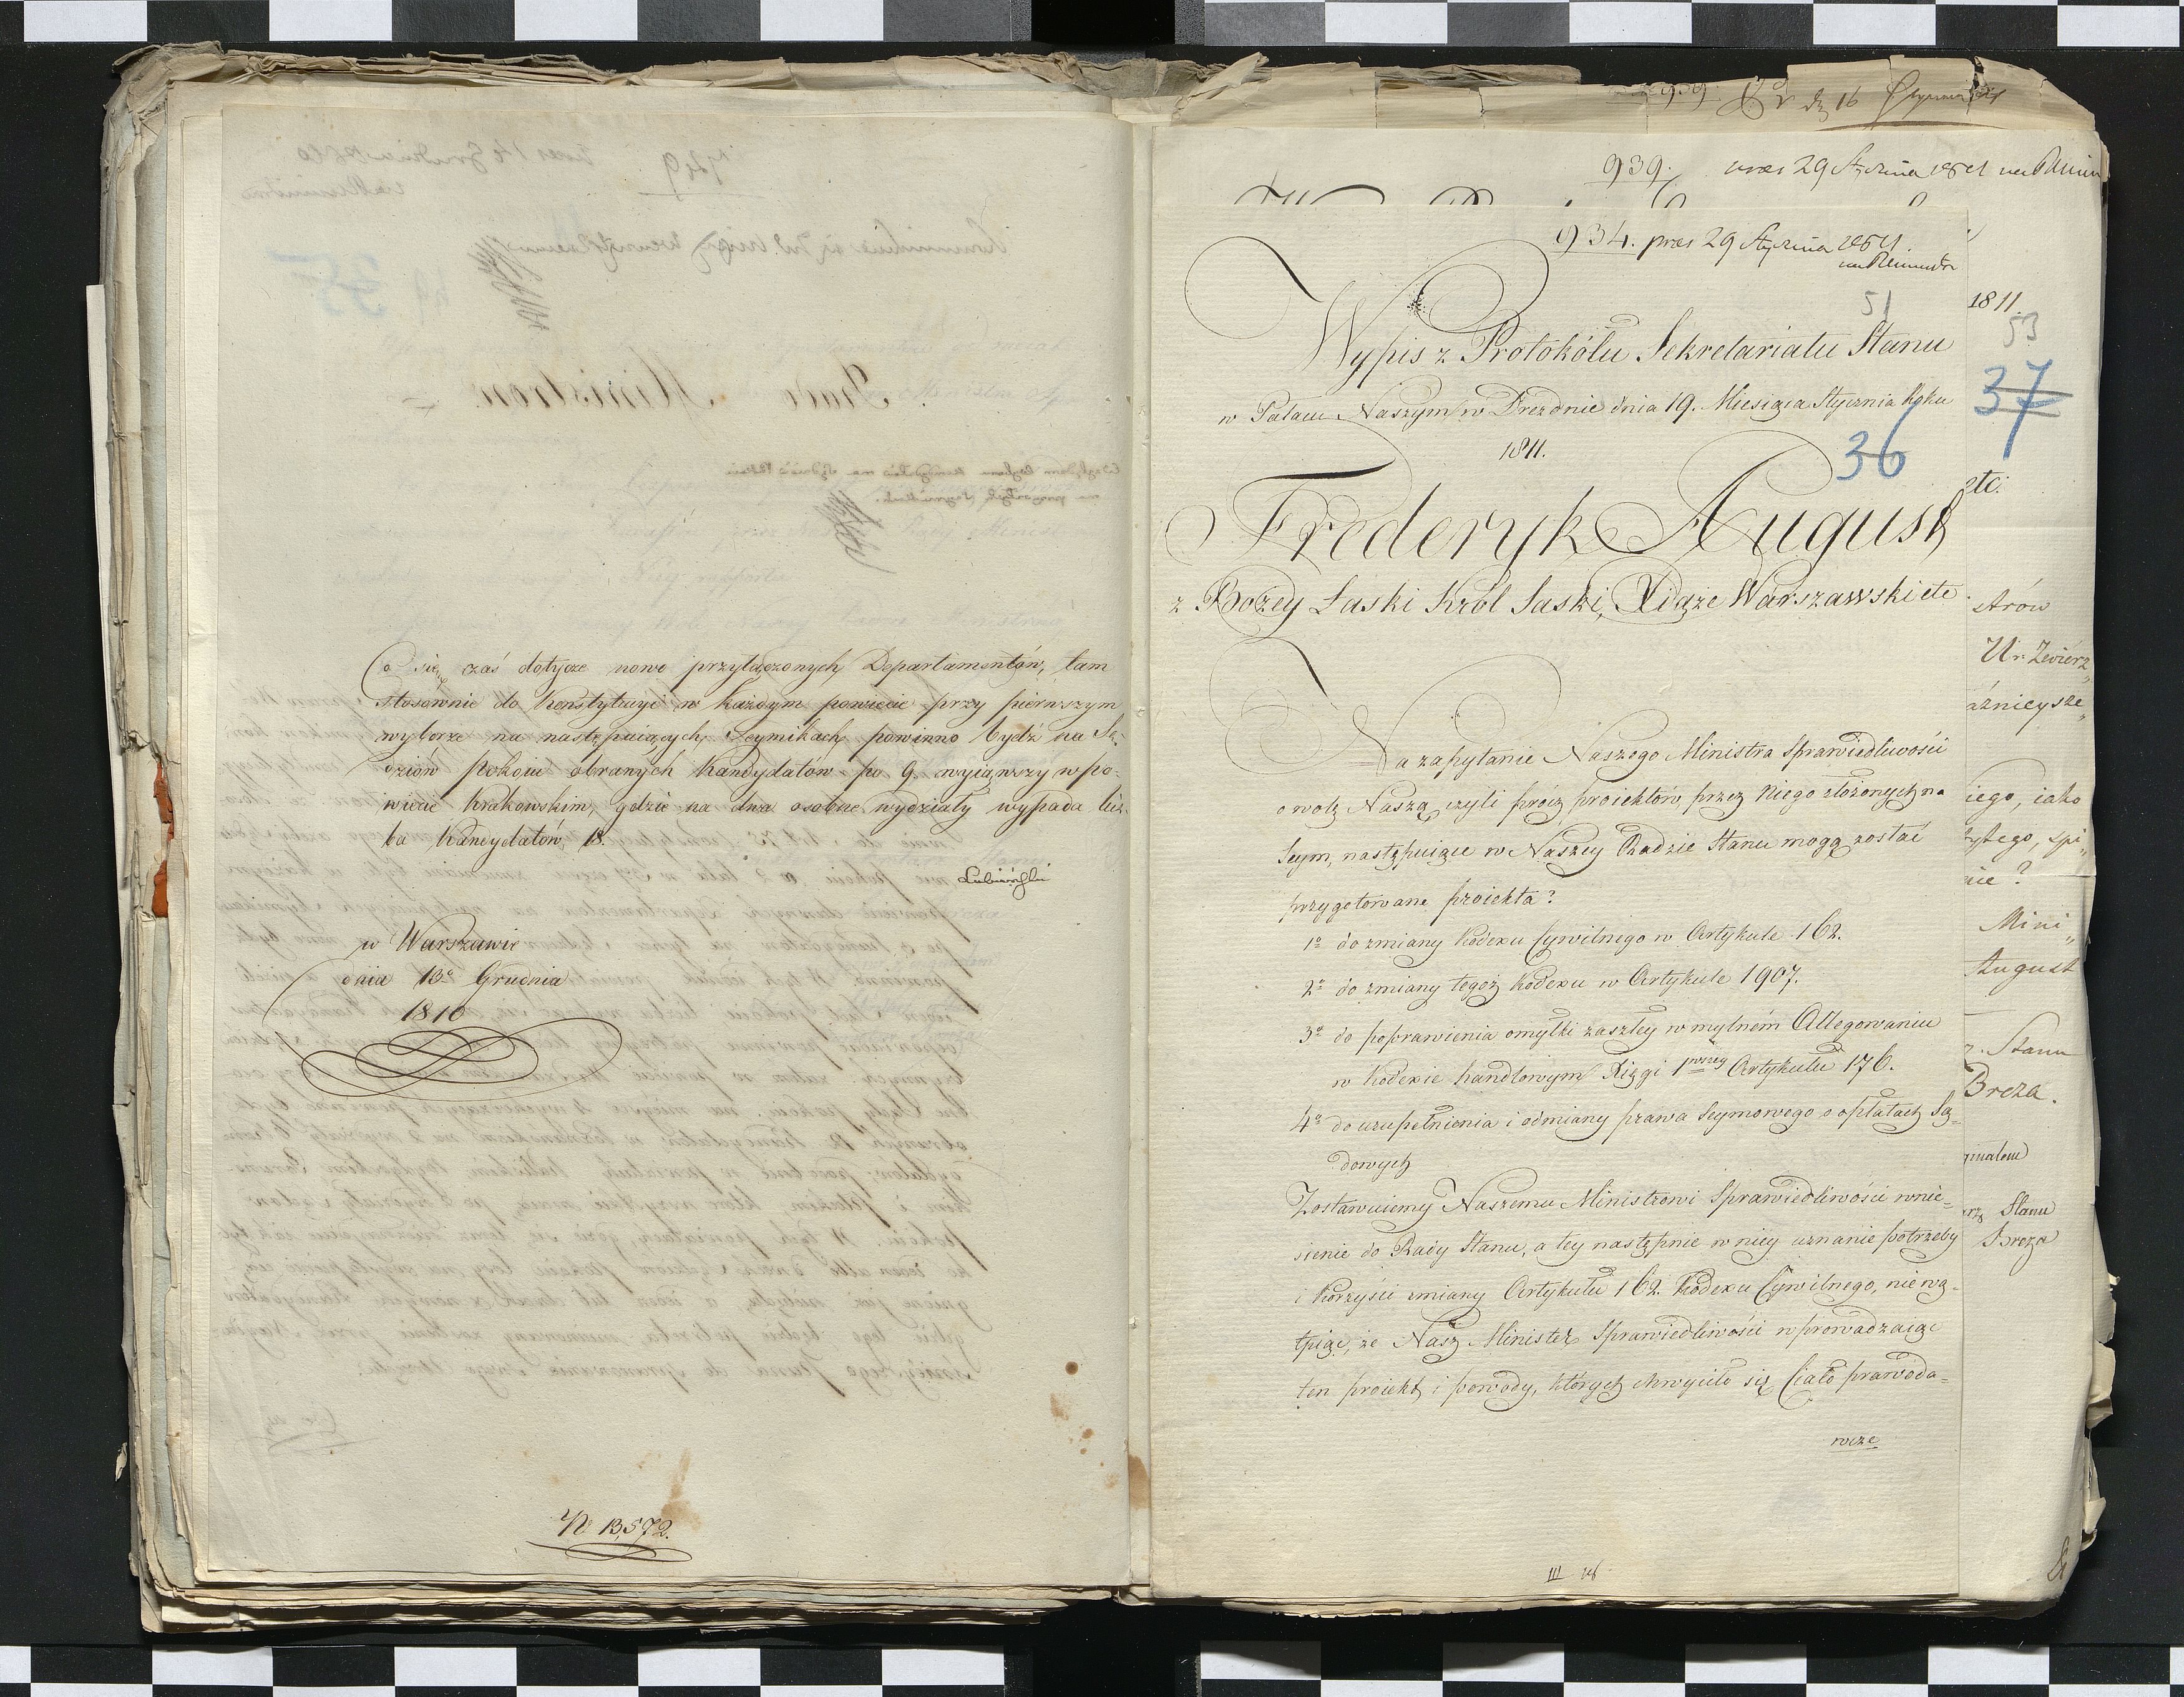 Co się zaś dotycze nowo przyłączonych Departamentów, tam
stosownie do Konstytucyi w każdym powiecie przy pierwszym
wyborze na następuiących Seymikach powinno bydź na Sę-
dziów Pokoiu obranych Kandydatów po 9. wyiąwszy w po-
wiecie Krakowskim, gdzie na dwa osobne wydziały wypada licz-
ba Kandydatów 18.
Lubieński
w Warszawie
dnia 13º Grudnia
1810
Nº 13,572.
939.
16
939. pres 29 Stycznia 1811
934. pres 29 Stycznia 1811.
51
Wypis z Protokółu Sekretariatu Stanu
w Pałacu Naszym w Dreznie dnia 19. Miesiąca Stycznia Roku
1811.
36
Frederyk August
z Bożey Łaski Król Saski, Xiąże Warszawski etc
Na zapytanie Naszego Ministra Sprawiedliwości
o wolą Naszą, czyli prócz proiektów, przez Niego złożonych na
Seym, następuiące w Naszey Radzie Stanu mogą zostać
przygotowane proiekta?
1º do zmiany Kodexu Cywilnego w Artykule 162.
2º do zmiany tegoż Kodexu w Artykule 1907.
3º do poprawienia omyłki zaszłey w mylném Allegowaniu
w Kodexie handlowym Xięgi 1wszey Artykułu 176.
4º do uzupełnienia i odmiany prawa Seymowego o opłatach Są-
dowych
Zostawuiemy Naszemu Ministrowi Sprawiedliwości wnie-
sienie do Rady Stanu, a tey następnie w niey uznanie potrzeby
i korzyści zmiany Artykułu 162. Kodexu Cywilnego, nie wą-
tpiąc, że Nasz Minister Sprawiedliwości wprowadzaiąc
ten proiekt i powody, których chwyciło się Ciało prawoda-
wcze
1811.
53
37
etc:
strów
Ur. Zwierz
ażnieysze
iego, iako
nie?
Mini
August
Stanu
Breza.
ginałem
Stanu
Breza